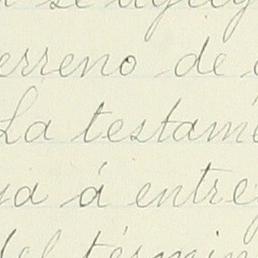 se
erreno de
La testame
ya á entre
del términ